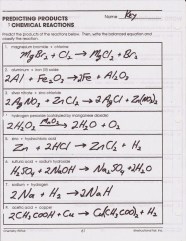 PREDICTING PRODUCTS
OF CHEMICAL REACTIONS
Name Key
Predict the products of the reactions below. Then, write the balanced equation and
classify the reaction.
1. magnesium bromide + chlorine
MgBr₂ + Cl₂ → MgCl₂ + Br₂
2. aluminum + iron (III) oxide
2Al + Fe₂O₃ → 2Fe + Al₂O₃
3. silver nitrate + zinc chloride
2AgNO₃ + ZnCl₂ → 2AgCl + Zn(NO₃)₂
4. hydrogen peroxide (catalyzed by manganese dioxide)
2H₂O₂ MnO₂ → 2H₂O + O₂
5. zinc + hydrochloric acid
Zn + 2HCl → ZnCl₂ + H₂
6. sulfuric acid + sodium hydroxide
H₂SO₄ + 2NaOH → Na₂SO₄ + 2H₂O
7. sodium + hydrogen
2Na + H₂ → 2NaH
8. acetic acid + copper